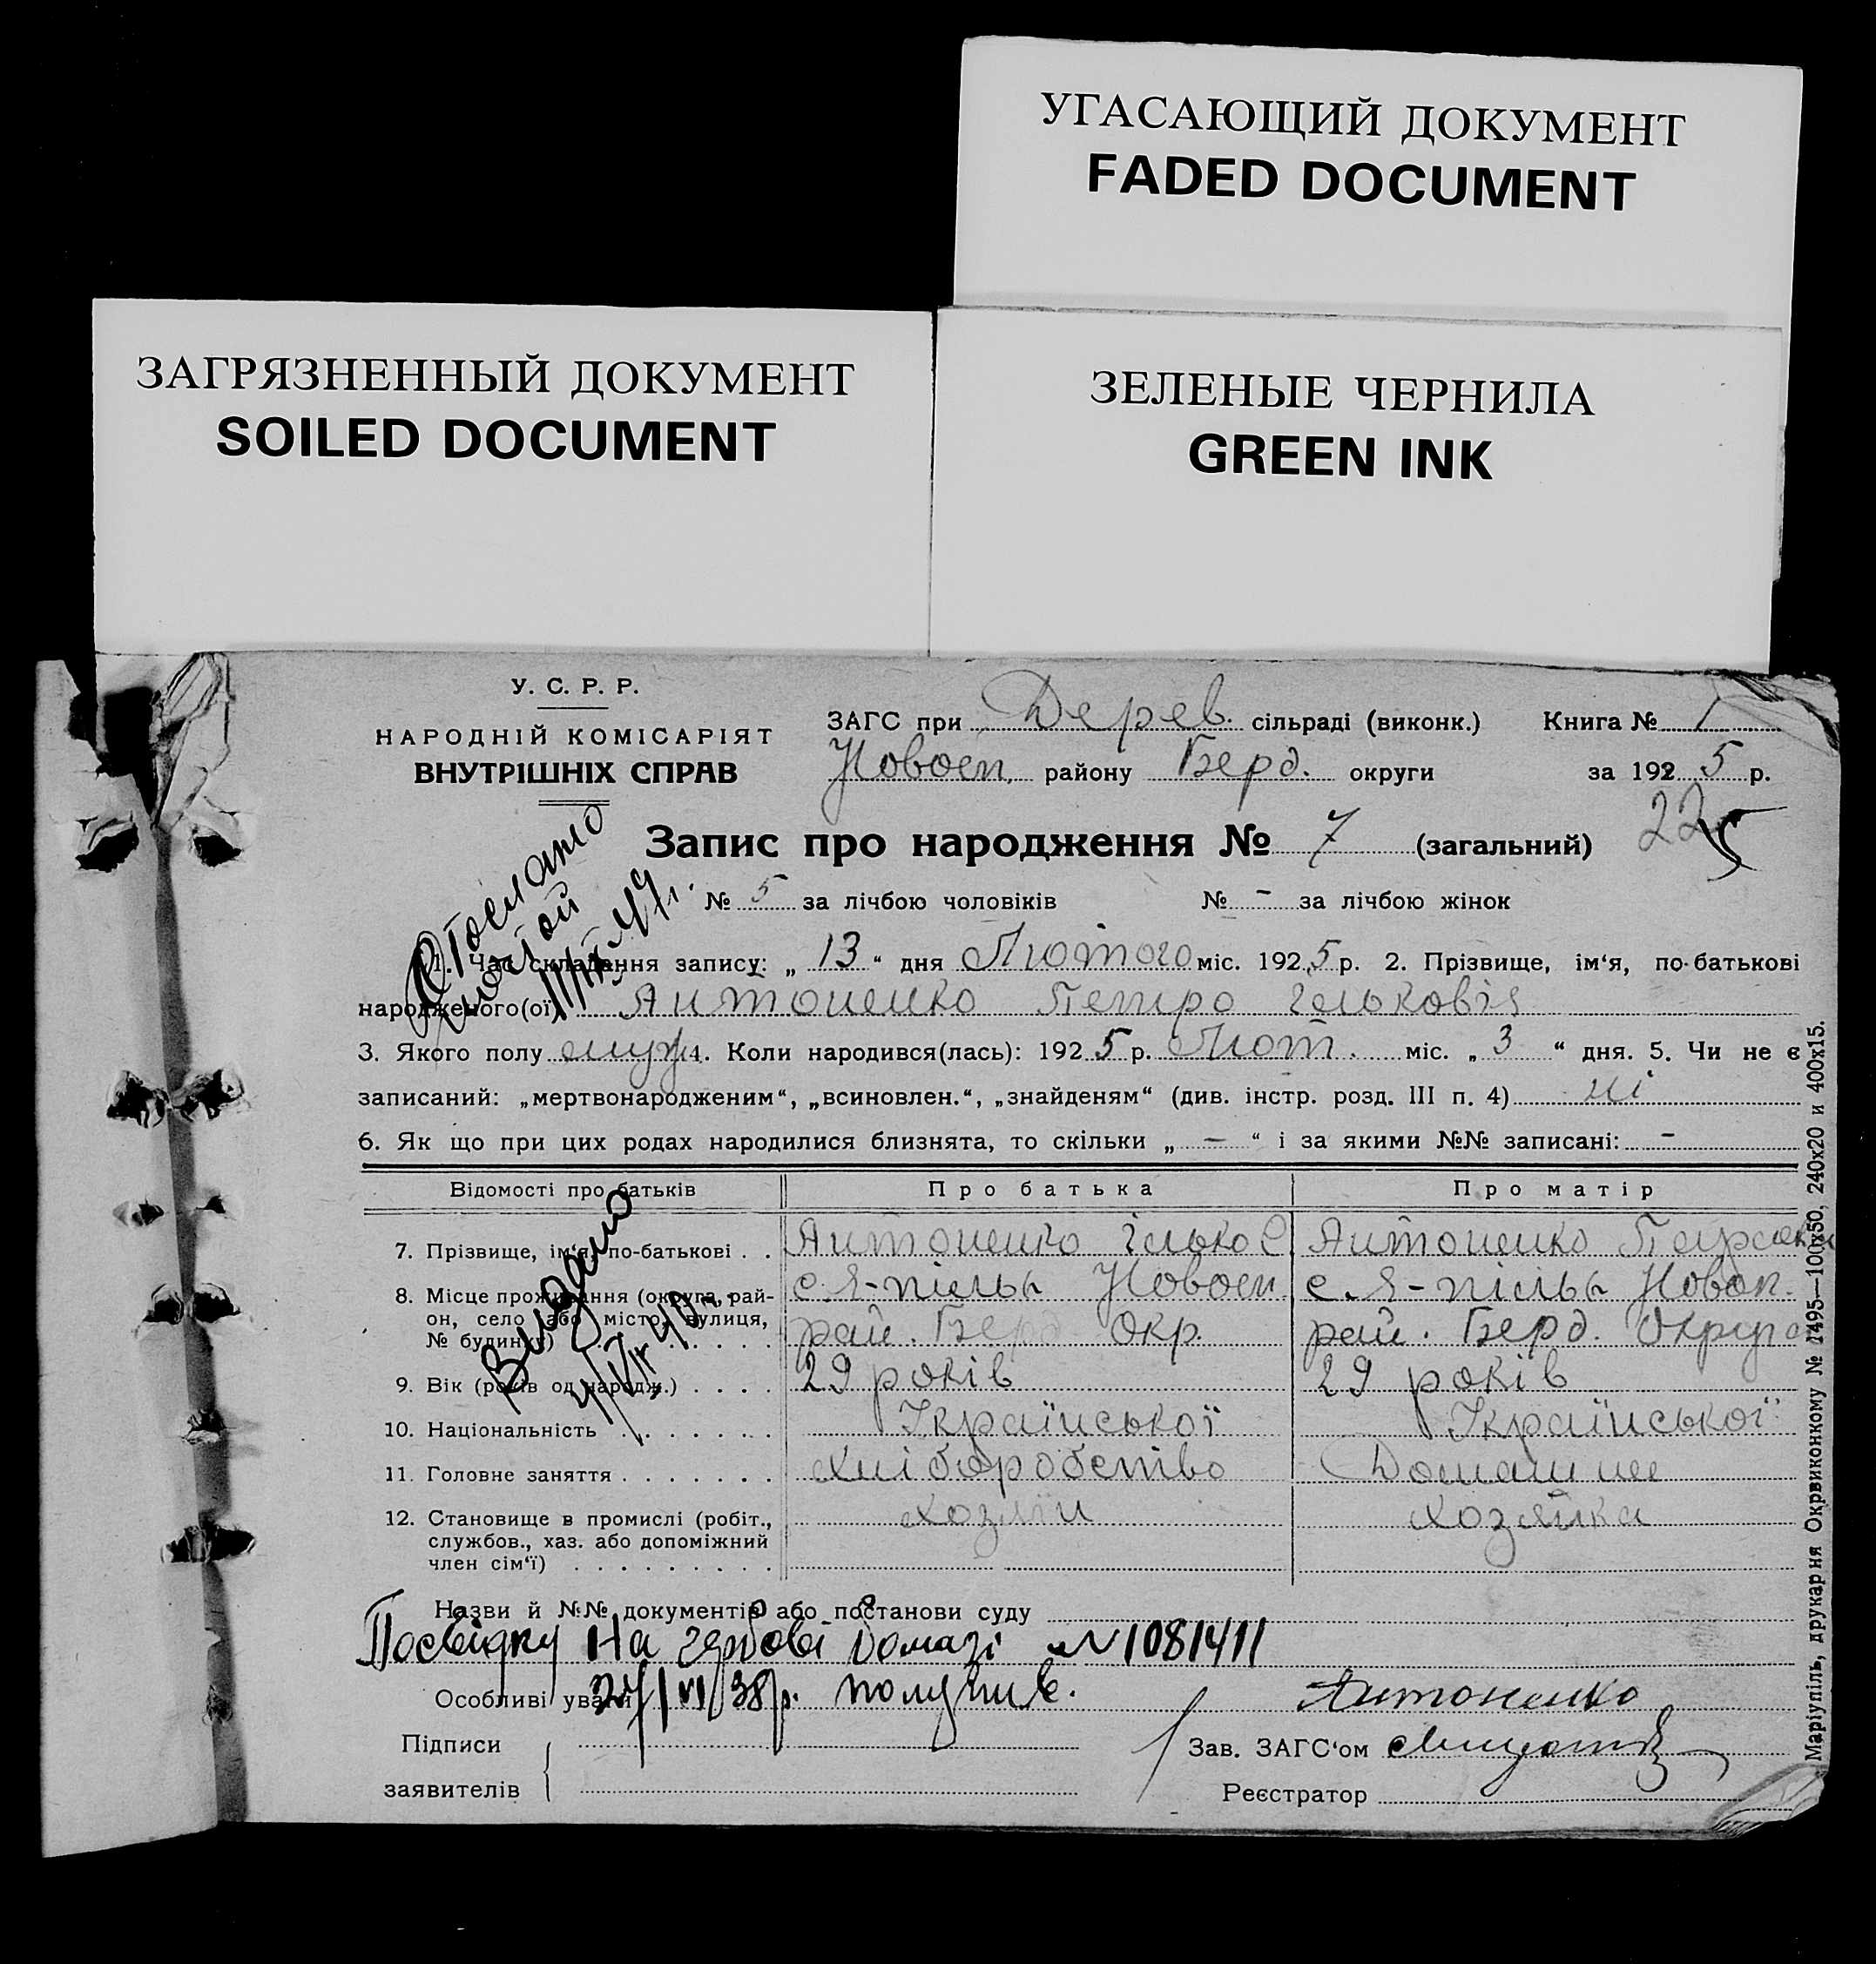 УГАСАЮЩИЙ ДОКУМЕНТ
FADED DOCUMENT
ЗАГРЯЗНЕННЫЙ ДОКУМЕНТ
SOILED DOCUMENT
ЗЕЛЕНЫЕ ЧЕРНИЛА
GREEN INK
У. С. Р. Р.
НАРОДНІЙ КОМІСАРІЯТ
ВНУТРІШНІХ СПРАВ
ЗАГС при Дерев. сільраді (виконк.) Книга № 1
Новосп. району Берд. округи за 1925 р.
225
Запис про народження № 7 (загальний)
№ 5 за лічбою чоловіків № - за лічбою жінок
1. Час складання запису: „13“ дня Лютого міс. 1925 р. 2. Прізвище, ім‘я, по-батькові
народженого(ої) Антоненко Петро Ількович
3. Якого полу муж. 4. Коли народився(лась): 1925 р. Лют. міс. „3“ дня. 5. Чи не є
записаний: „мертвонародженим“, „всиновлен.“, „знайденям“ (див. інстр. розд. III п. 4) ні
6. Як що при цих родах народилися близнята, то скільки „—“ і за якими №№ записані: -
Відомості про батьків Про батька Про матір
7. Прізвище, ім‘я, по-батькові . . АнтоненкоІлько С. Антоненко Параска
8. Місце проживання (округа, рай-
он, село або місто, вулиця,
№ будинку)
с. Я-пілля Новосп. рай. Берд. Окр.
с. Я-пілля Новосп. рай. Берд. Округа
9. Вік (років од народж.) . . . . 29 років 29 років
10. Національність . . . . . . . Української Української
11. Головне заняття . . . . . . . Хліборобство Домашнее
12. Становище в промислі (робіт.,
службов., хаз. або допоміжний
член сім‘ї) . . . . . . . . .
хозяїн хозяйка
Видано
Назви й №№ документів або постанови суду
Посвідку на гербові бомазі N 1081411
Особливі уваги 27/VI 38р. получив. Антоненко
Підписи
заявителів
Зав. ЗАГС‘ом
Реєстратор
Маріупіль, друкарня Окрвиконкому № 1495—100х50, 240х20 и 400х15.